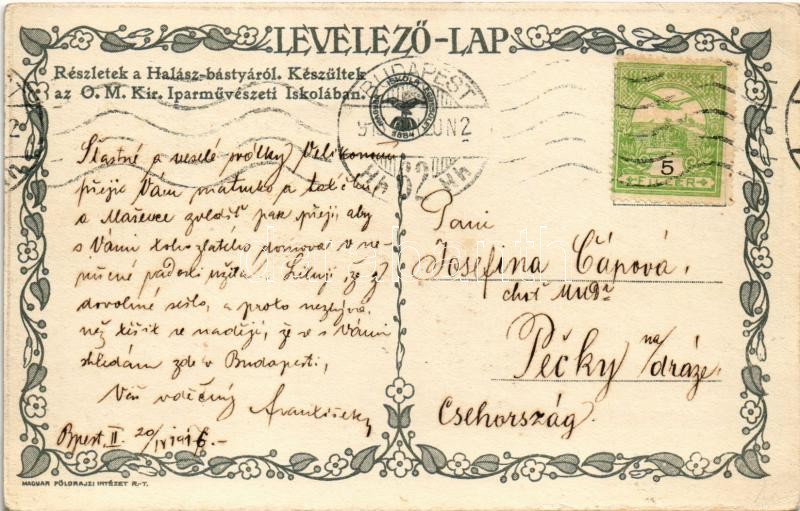 LEVELEZŐ-LAP
Részletek a Halász-bástyáról. Készültek
az O. M. Kir. Iparművészeti Iskolában.
BUDAPEST
5
FILLÉR
Šťastné a veselé svátky Velikonoční
přeji Vám matinko a
a Mařence zvlášť pak přeji, aby
s Vámi toho zlatého domova v
rušené radosti užila. Lituji, že z
dovolené sešlo, a proto nezbývá,
než těšit se nadějí, že se s Vámi
shledám zde v Budapešti,
Váš vděčný
František
Bpest II. 20/IV 1916.-
Paní
Josefina Čápová,
choť MUDra
Pečky na/dráze.
Csehország.
MAGYAR FÖLDRAJZI INTÉZET R.-T.